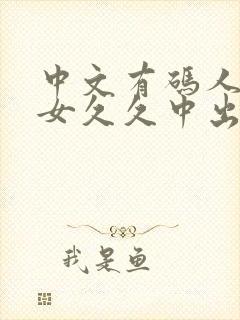 中文有码人
女久久中出
我是鱼